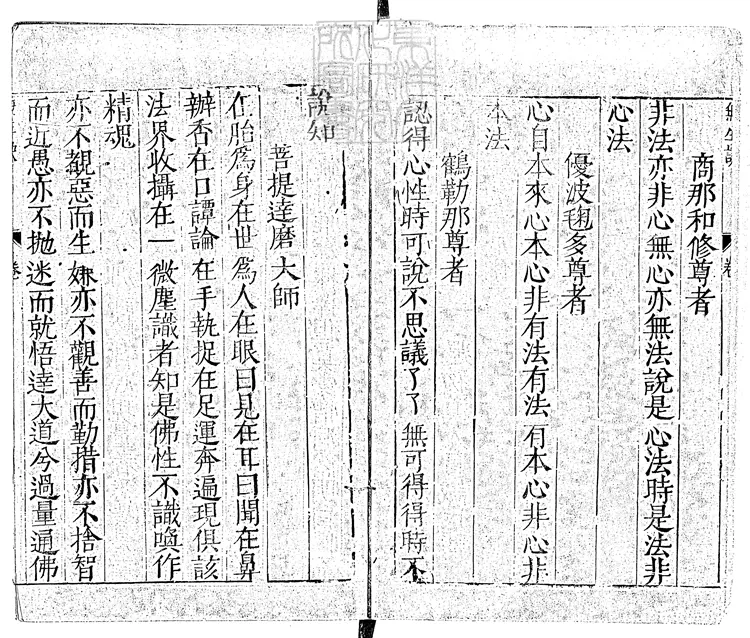 商那和修尊者
非法亦非心無心亦無法說是心法時是法非
心法
優波毱多尊者
心自本來心本心非有法有法有本心非心非
本法
鶴勒那尊者
認得心性時可說不思議了了無可得得時不
說知
菩提達磨大師
在胎為身在世為人在眼曰見在耳曰聞在鼻
辨香在口譚論在手執捉在足運奔遍現俱該
法界收攝在一微塵識者知是佛性不識喚作
精魂
亦不覩惡而生嫌亦不觀善而勤措亦不捨智
而近愚亦不拋迷而就悟達大道兮過量通佛